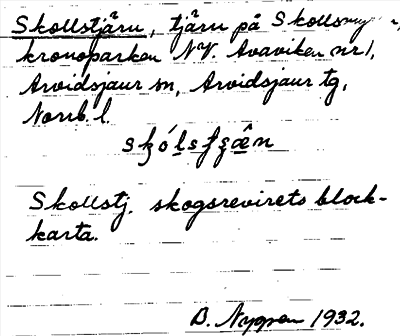 Skollstjärn, tjärn på
kronoparken NV. Avaviken nr 1,
Arvidsjaur sn, Arvidsjaur tg,
Norrb. l.
Skollstj. skogsrevirets block-
karta.
B. Nygren 1932.